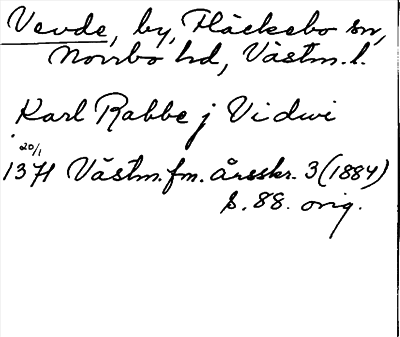 Vevde, by, Fläckebo sn,
Norrbo hd, Västm. l.
Karl Rabbe j Vidwi
20/1
1371 Västm. fm. årsskr. 3 (1884)
s. 88. orig.